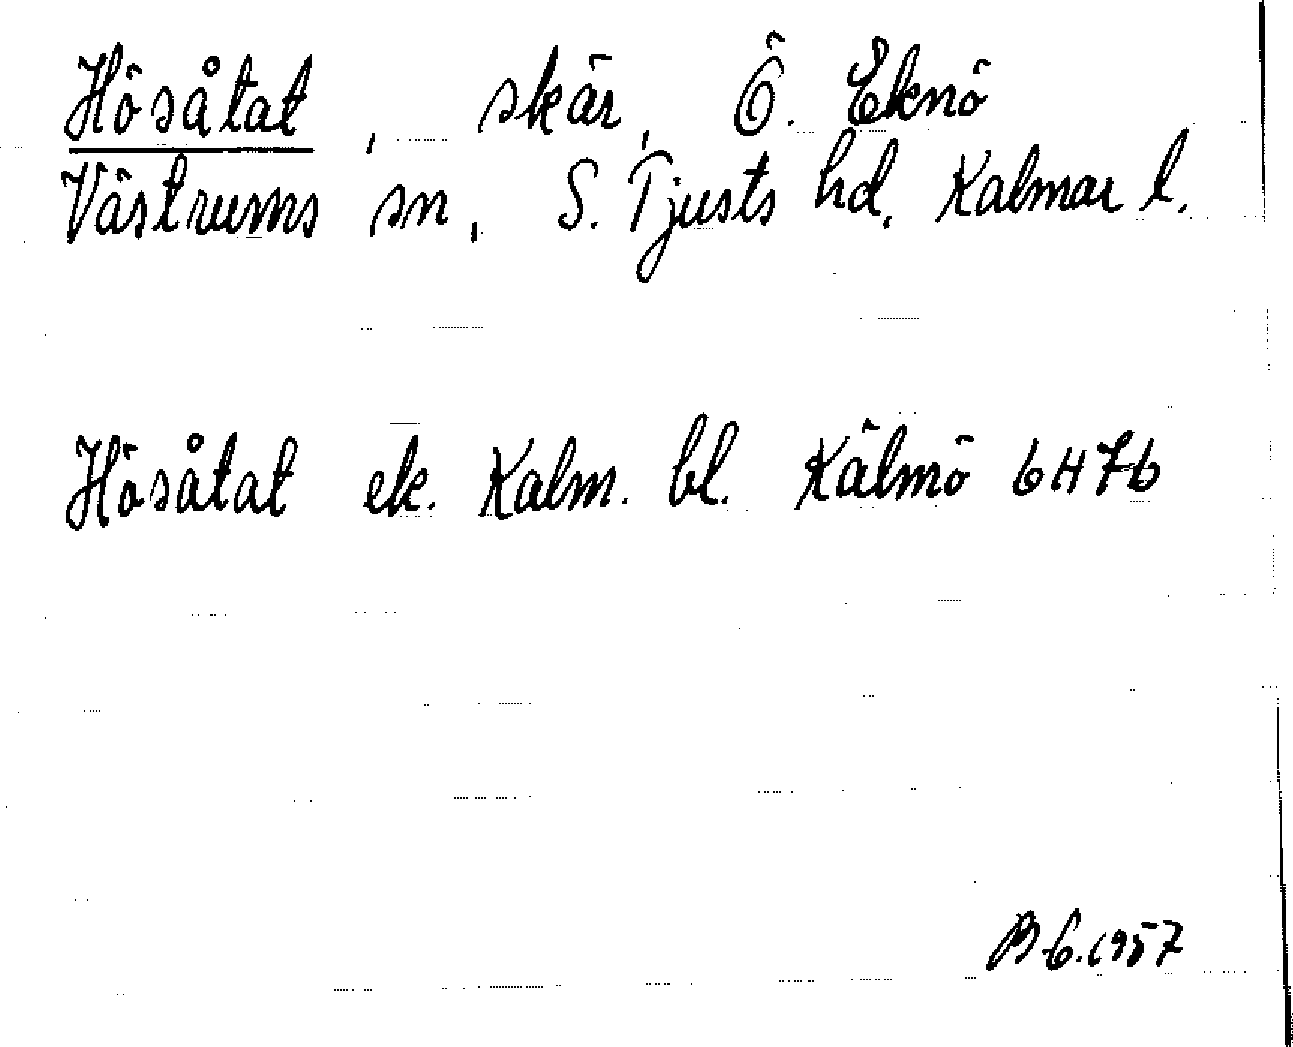 Hösåtat, skär, Ö. Eknö
Västrums sn, S. Tjusts hd. Kalmar l.
Hösåtat ek. Kalm. bl. Kälmö 6H7b
1957